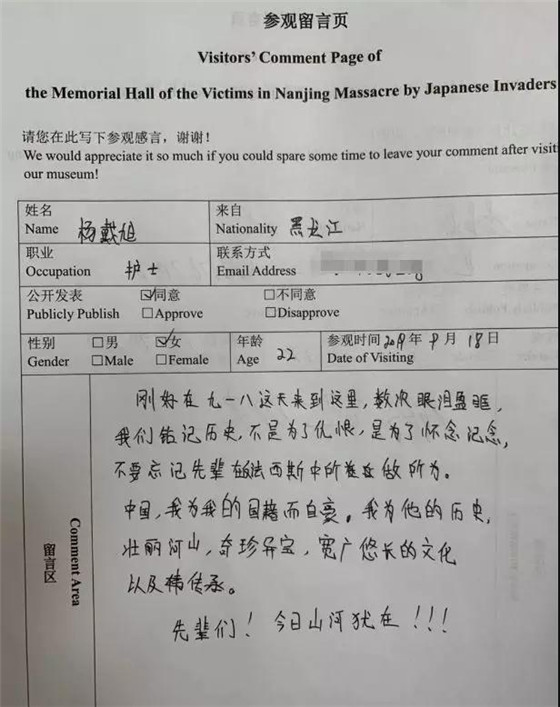 参观留言页
Visitors' Comment Page of
the Memorial Hall of the Victims in Nanjing Massacre by Japanese Invaders
请您在此写下参观感言，谢谢！
We would appreciate it so much if you could spare some time to leave your comment after visiti
our museum!
姓名 来自
Name 杨戴旭 Nationality 黑龙江
职业 联系方式
Occupation 护士 Email Address
公开发表 ☑同意 □不同意
Publicly Publish □Approve □Disapprove
性别 □男 ☑女 年龄 参观时间 2019年9月18日
Gender □Male □Female Age 22 Date of Visiting
Comment Area
留言区
刚好在九一八这天来到这里，数次眼泪盈眶，
我们铭记历史，不是为了仇恨，是为了怀念记念，
不要忘记先辈在法西斯中所做所为。
中国，我为我的国籍而自豪。我为他的历史，
壮丽河山，奇珍异宝，宽广悠长的文化
以及传承。
先辈们！今日山河犹在！！！